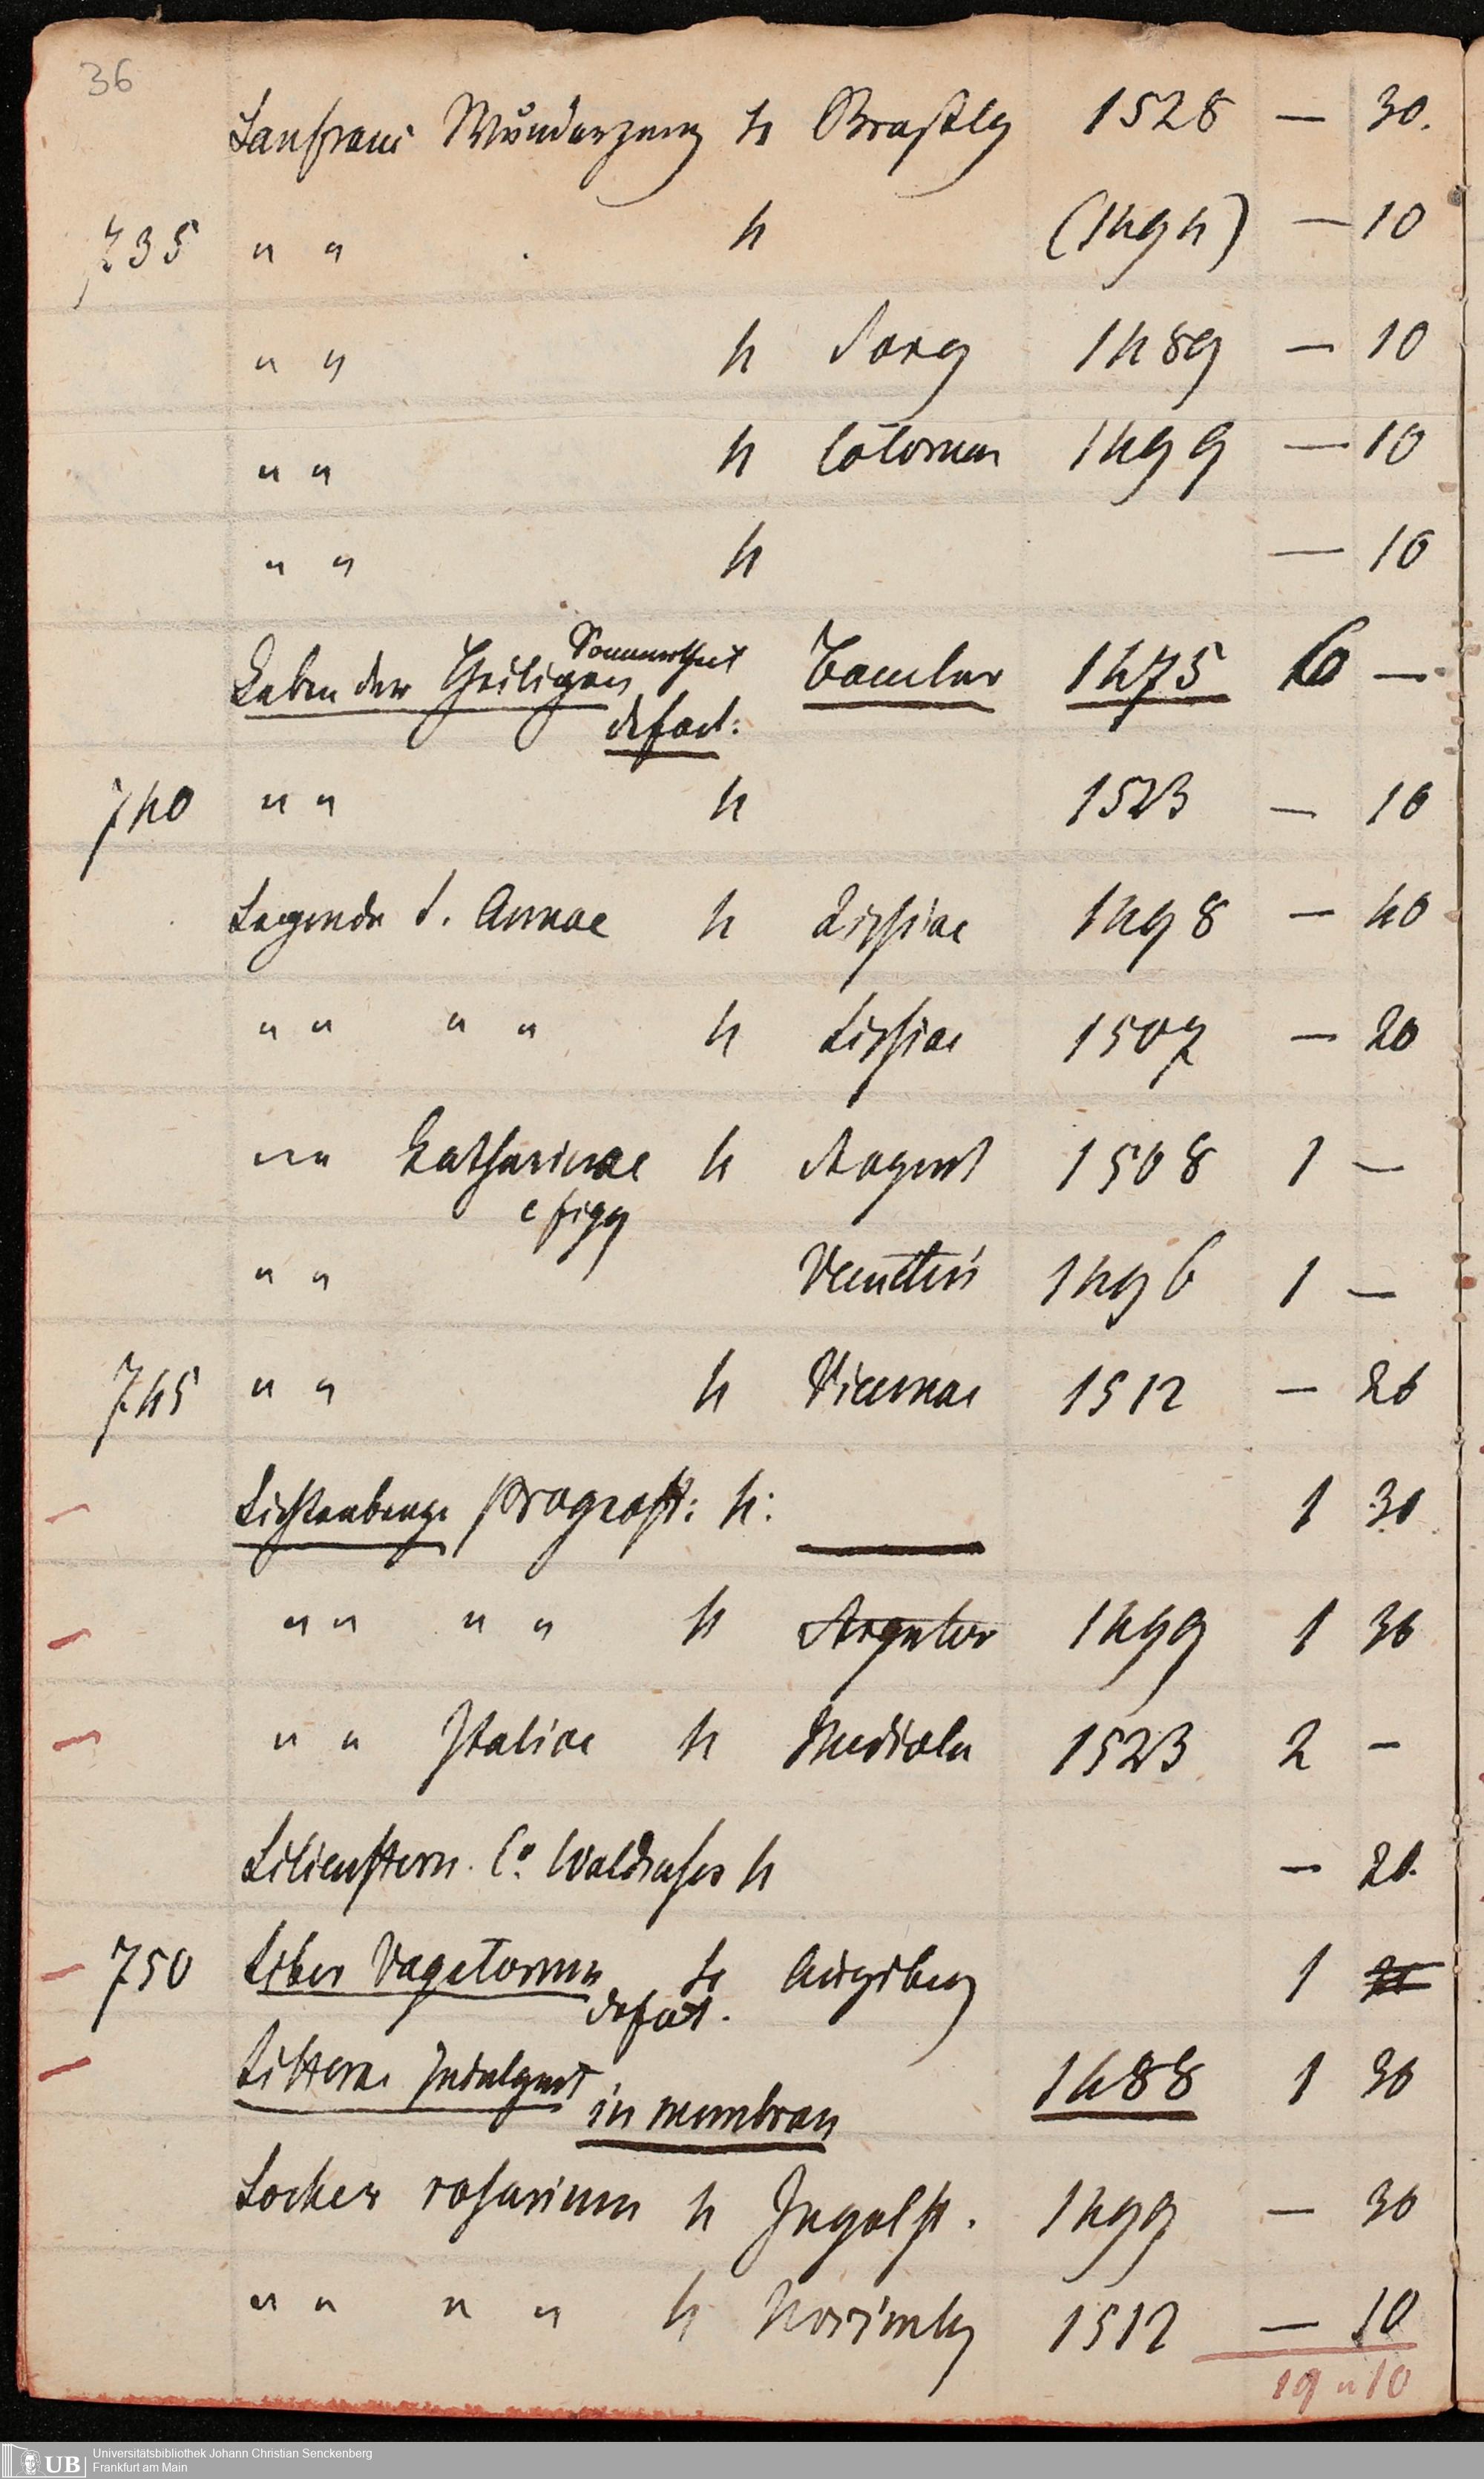 36
Lanfranc Wundarzney 4 1528 — 30.
735 " " 4 (1494) — 10
" " 4 Sorg 1489 — 10
" " 4 1499 — 10
" " 4 — 10
Leben der Heiligen Sommertheil Baemler 1475 6 —
defect:
740 " " 4 1523 — 10
Legenda S. Annae 4 Lipsiae 1498 — 40
" " " " 4 Lipsiae 1507 — 20
" " Katharinae 4 Argent 1508 1 —
c figg
" " 1496 1 —
745 " " 4 Viennae 1512 — 20
Lichtenberger Prognost: 4: 1 30
" " " " 4 1499 1 30
" " Italice 4 Mediola 1523 2 —
Lilienstern. 4 — 20.
750 Liber Vagatorum 4 Augsburg 1
defect.
Littera Indulgent 1488 1 30
in membran
Locher rosarium 4 Ingolst. 1499 — 30
" " " " 4 Norimbg 1512 — 10
19 " 10
UB Universitätsbibliothek Johann Christian Senckenberg
Frankfurt am Main